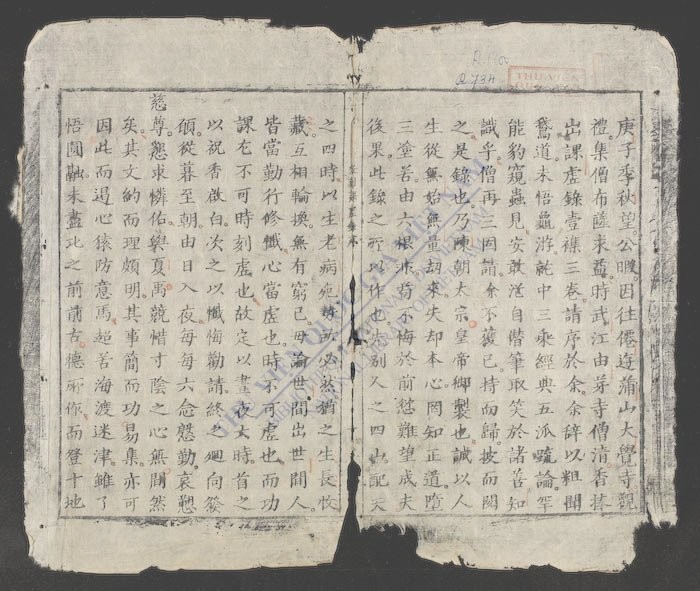 庚子季秋望公暇因往僊遊蒲山大覺寺觀
禮集僧布薩求益時武江由芽寺僧清香捧
出課虛錄壹襍三卷請序於余余辭以粗聞
鶩道未悟龜游就中三乘經典五派疏論罕
能豹窺蟲見安敢泚自僣筆取笑於諸善知
識乎僧再三固請余不獲已持而歸披而閱
之是錄也乃陳朝太宗皇帝御製也誠以人
生從無始無量劫來失却本心罔知正道墮
三塗若由六根非苟不悔於前愆難望成夫
後果此錄之所以作也先別人之四山配天
之四時以生老病死勢所必然猶之生長收
藏互相輪換無有窮已毋論世間出世間人
皆當勤行修懺心當虛也時不可虛也而功
課尤不可時刻虛也故定以晝夜六時首之
以祝香啟白次之以懺悔勸請終之廻向發
願從暮至朝由日入夜每每六念慇勤哀懇
慈尊懇求憐佑與夏禹競惜寸陰之心無間然
矣其文約而理頗明其事簡而功易集亦可
因此而遏心猿防意馬超苦海渡迷津雖了
悟圓融未盡此之前前古德所作而登十地
A.1400
A.734
THƯ VIỆN